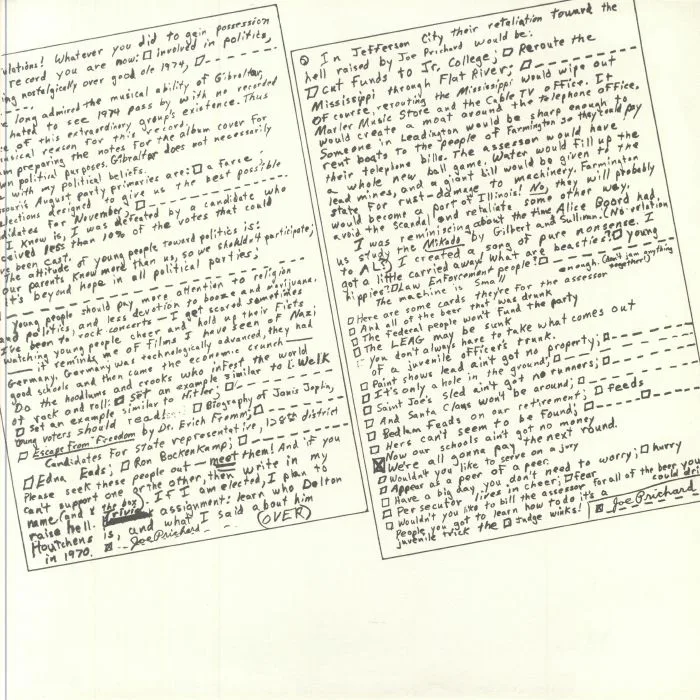 ulations! Whatever you did to gain possession
record you are now: ☐ involved in politics,
ng nostalgically over good ole 1974, ☐
long admired the musical ability of Gibraltar,
hated to see 1974 pass by with no recorded
e of this extraordinary group's existence. Thus
nsical reason for this record.
am preparing the notes for the album cover for
wn political purposes. Gibraltar does not necessarily
with my political beliefs.
souri's August party primaries are: ☐ a farce,
lections designed to give us the best possible
didates for November; ☐
I know is, I was defeated by a candidate who
ceived less than 10% of the votes that could
ve been cast.
e attitude of young people toward politics is:
our parents know more than us, so we shouldn't participate,
it's beyond hope in all political parties;
Young people should pay more attention to religion
and politics, and less devotion to booze and marijuana.
I've been to rock concerts — I get scared sometimes
watching young people cheer and hold up their fists
it reminds me of films I have seen of Nazi
Germany. Germany was technologically advanced, they had
good schools and then came the economic crunch
Do the hoodlums and crooks who infest the world
of rock and roll: ☒ set an example similar to L. Welk
☐ Set an example similar to Hitler; ☐
Young voters should read: ☐ Biography of Janis Joplin,
☐ Escape from Freedom by Dr. Erich Fromm; ☐
Candidates for State representative, 128th district
☐ Edna Eads; ☐ Ron Bockenkamp; ☐
Please seek these people out — meet them! And if you
can't support one or the other, then write in my
name (and X the box). If I am elected, I plan to
raise hell. Trivia assignment: learn who Dalton
Houtchens is, and what I said about him
in 1970. ☒ Joe Prichard (OVER)
② In Jefferson City their retaliation toward the
hell raised by Joe Prichard would be:
☐ Cut funds to Jr. College; ☐ Reroute the
Mississippi through Flat River;
Of course, rerouting the Mississippi would wipe out
Marler Music Store and the Cable TV office. It
would create a moat around the telephone office.
Someone in Leadington would be sharp enough to
rent boats to the people of Farmington so they could pay
their telephone bills. The assessor would have
a whole new ball game. Water would fill up the
lead mines, and a giant bill would be given to the
state for rust-damage to machinery. Farmington
would become a part of Illinois! No, they will probably
avoid the scandal and retaliate some other way.
I was reminiscing about the time Alice Boord had
us study the Mikado by Gilbert and Sullivan. (No relation
to AL S) I created a song of pure nonsense. I
got a little carried away! What are beasties? ☐ young
hippies? ☐ Law Enforcement people? ☐
The machine is small enough. (Can't jam anything together)
☐ Here are some cards they're for the assessor
☐ And all of the beer that was drunk
☐ The federal people won't fund the party
☐ The LEAG may be sunk
☐ You don't always have to take what comes out
of a juvenile officer's trunk.
☐ Paint shows lead ain't got no property; ☐
☐ It's only a hole in the ground; ☐
☐ Saint Joe's sled ain't got no runners; ☐
☐ And Santa Claus won't be around; ☐
☐ Bedlam feeds on our retirement; ☐ feeds
☐ Hers can't seem to be found; ☐
☐ Now our schools ain't got no money
☒ We're all gonna pay the next round.
☐ Wouldn't you like to serve on a jury
☐ Appear as a peer of a peer
☐ Have a big day you don't need to worry; ☐ hurry
☐ Persecutor lives in cheer; ☐ fear
☐ Wouldn't you like to bill the assessor for all of the beer you
could dri
People you got to learn how to do it's a
juvenile trick the ☐ Judge winks! ☒ Joe Prichard